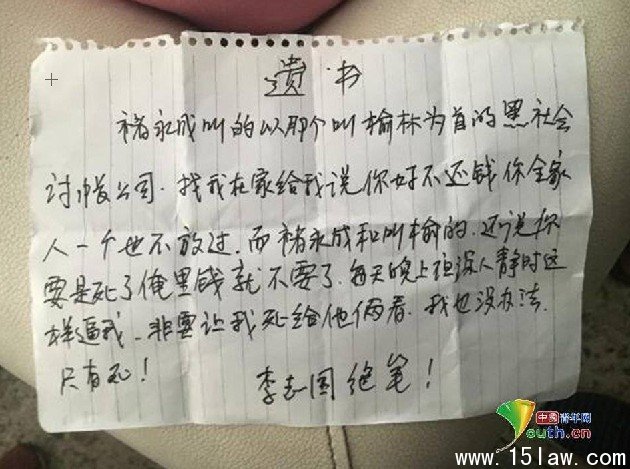 遗书
褚永成叫的以那个叫榆林为首的黑社会
讨债公司.找我在家给我说你好不还钱你全家
人一个也不放过.而褚永成和叫榆的.还说你
要是死了俺里钱就不要了.每天晚上夜深人静时这
样逼我.非要让我死给他俩看.我也没办法.
只有死!
李志国绝笔!
中国青年网
youth.cn
www.15law.com